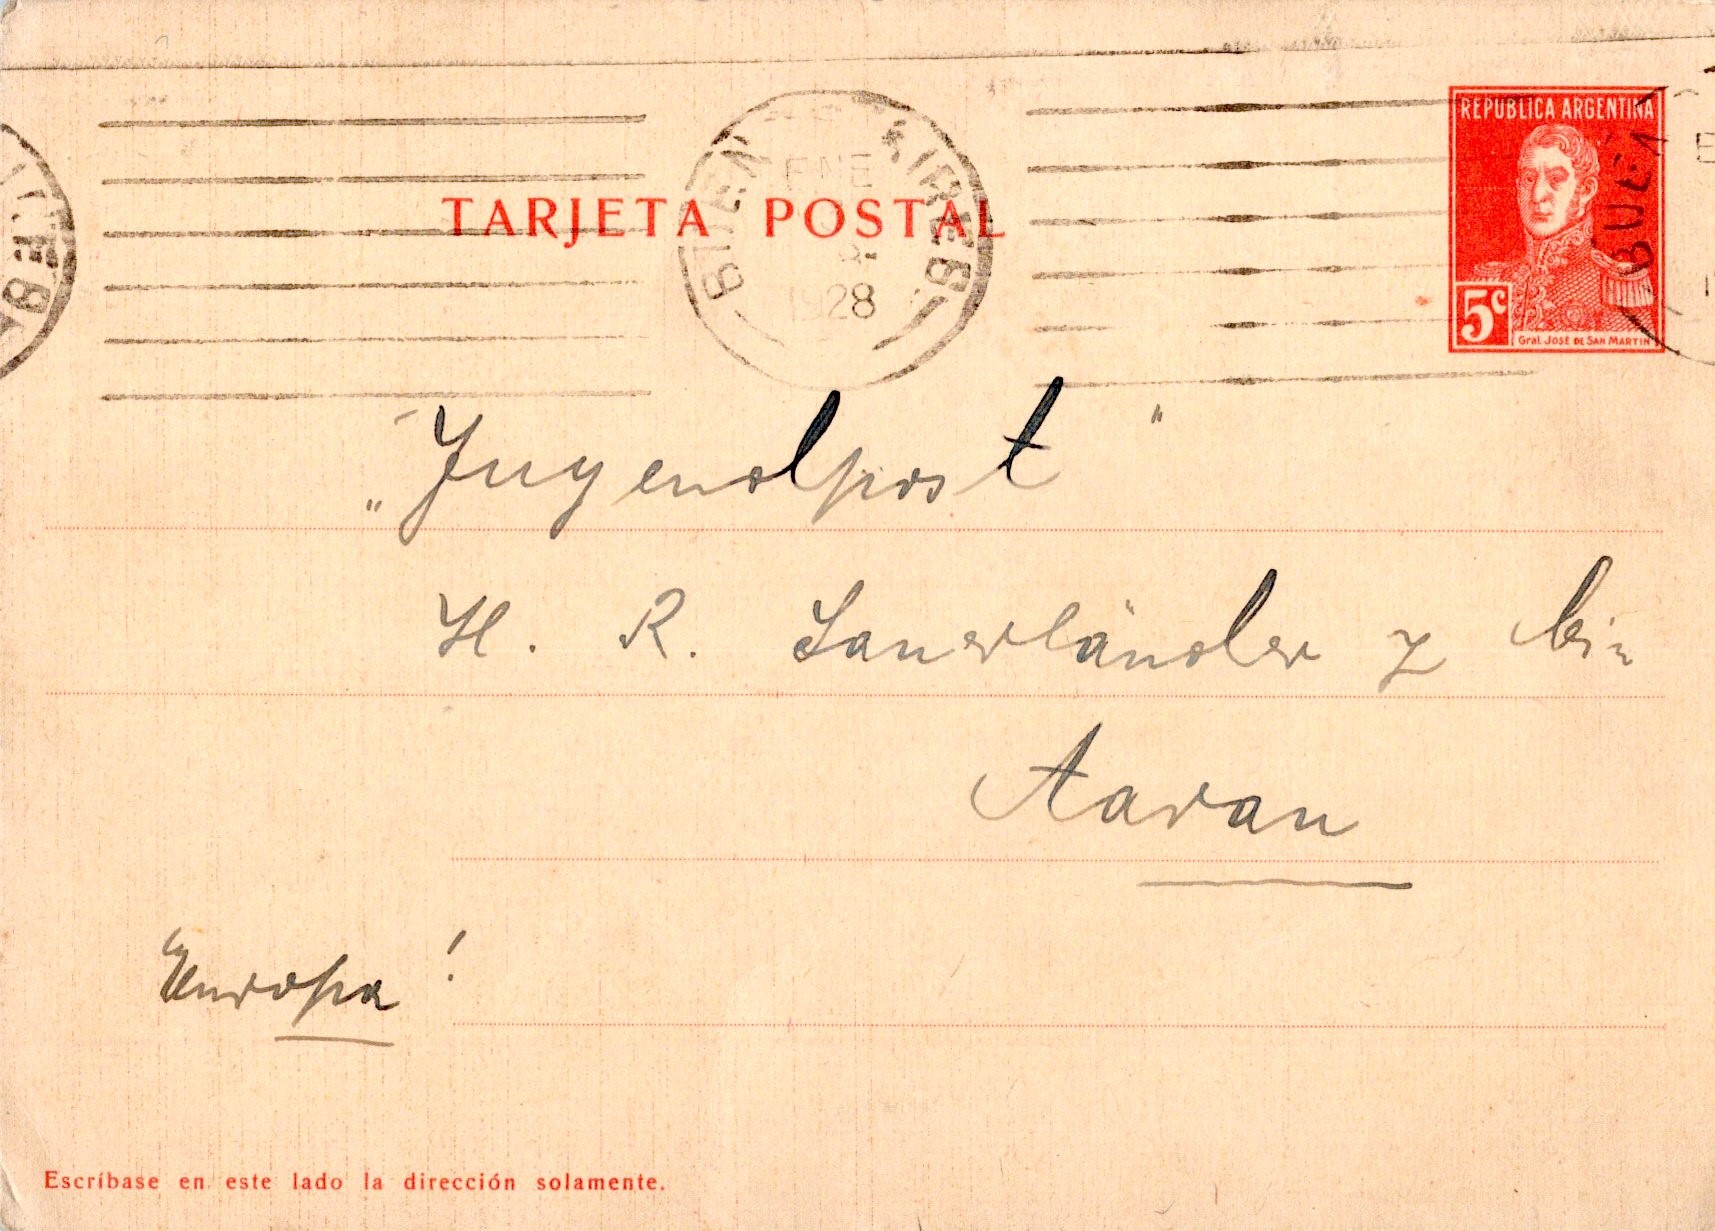 REPUBLICA ARGENTINA
BUEN AIRES
ENE
1928
TARJETA POSTAL
5c
Gral. JOSÉ DE SAN MARTIN
BUE
„Jugendpost"
H. R. Sauerländer y
Aarau
Europa!
Escríbase en este lado la dirección solamente.